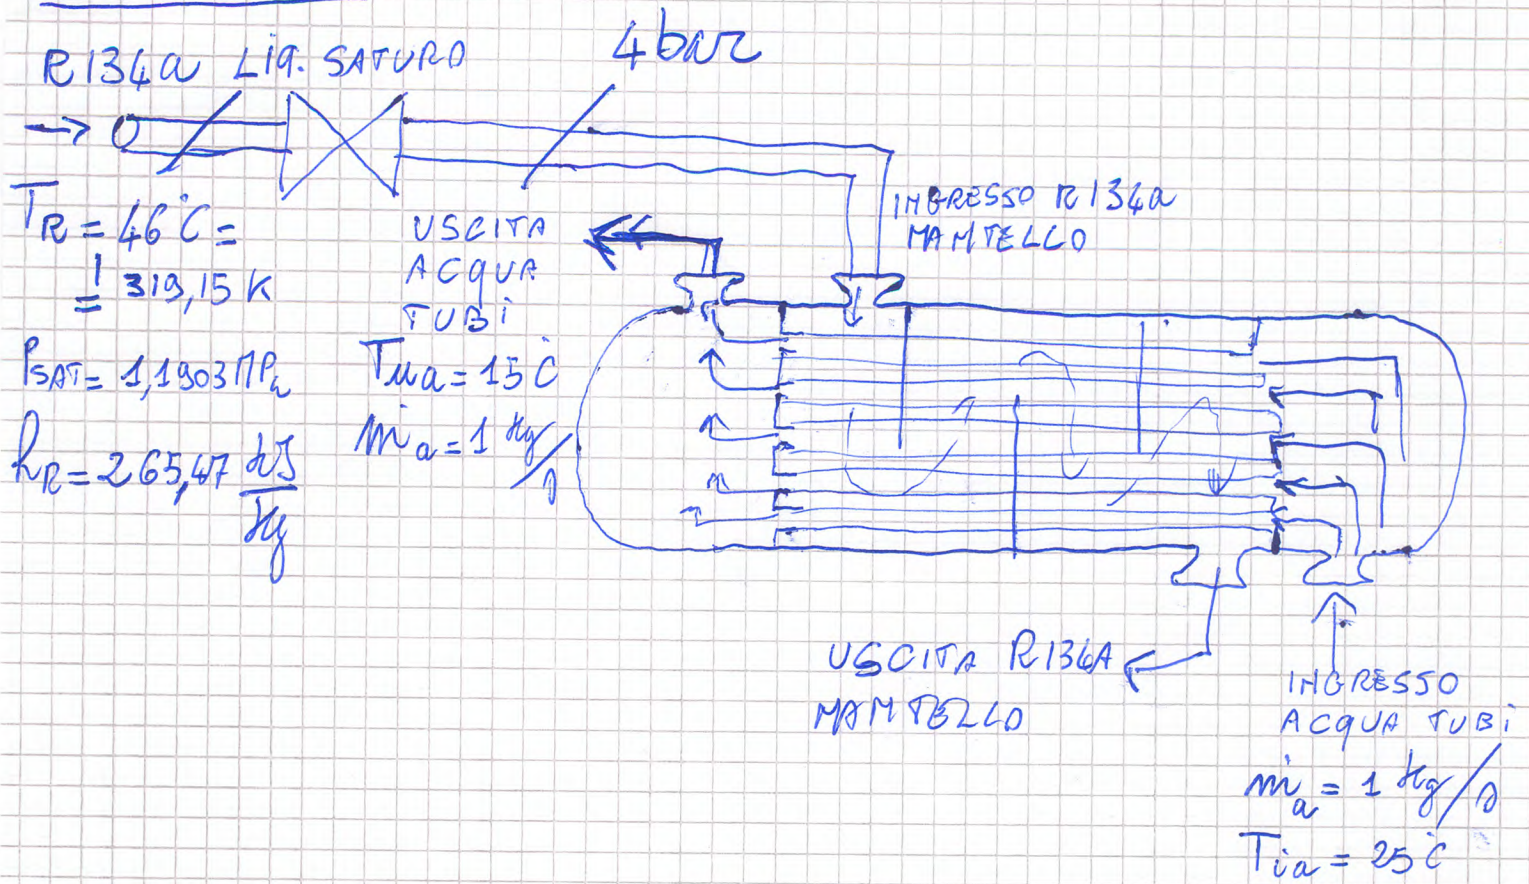 R134a LIQ. SATURO
4bar
TR = 46°C =
= 319,15 K
PSAT = 1,1903 MPa
hR = 265,47 kJ/Kg
USCITA
ACQUA
TUBI
Tua = 15°C
ṁa = 1 Kg/s
INGRESSO R134a
MANTELLO
USCITA R134A
MANTELLO
INGRESSO
ACQUA TUBI
ṁa = 1 Kg/s
Tia = 25°C